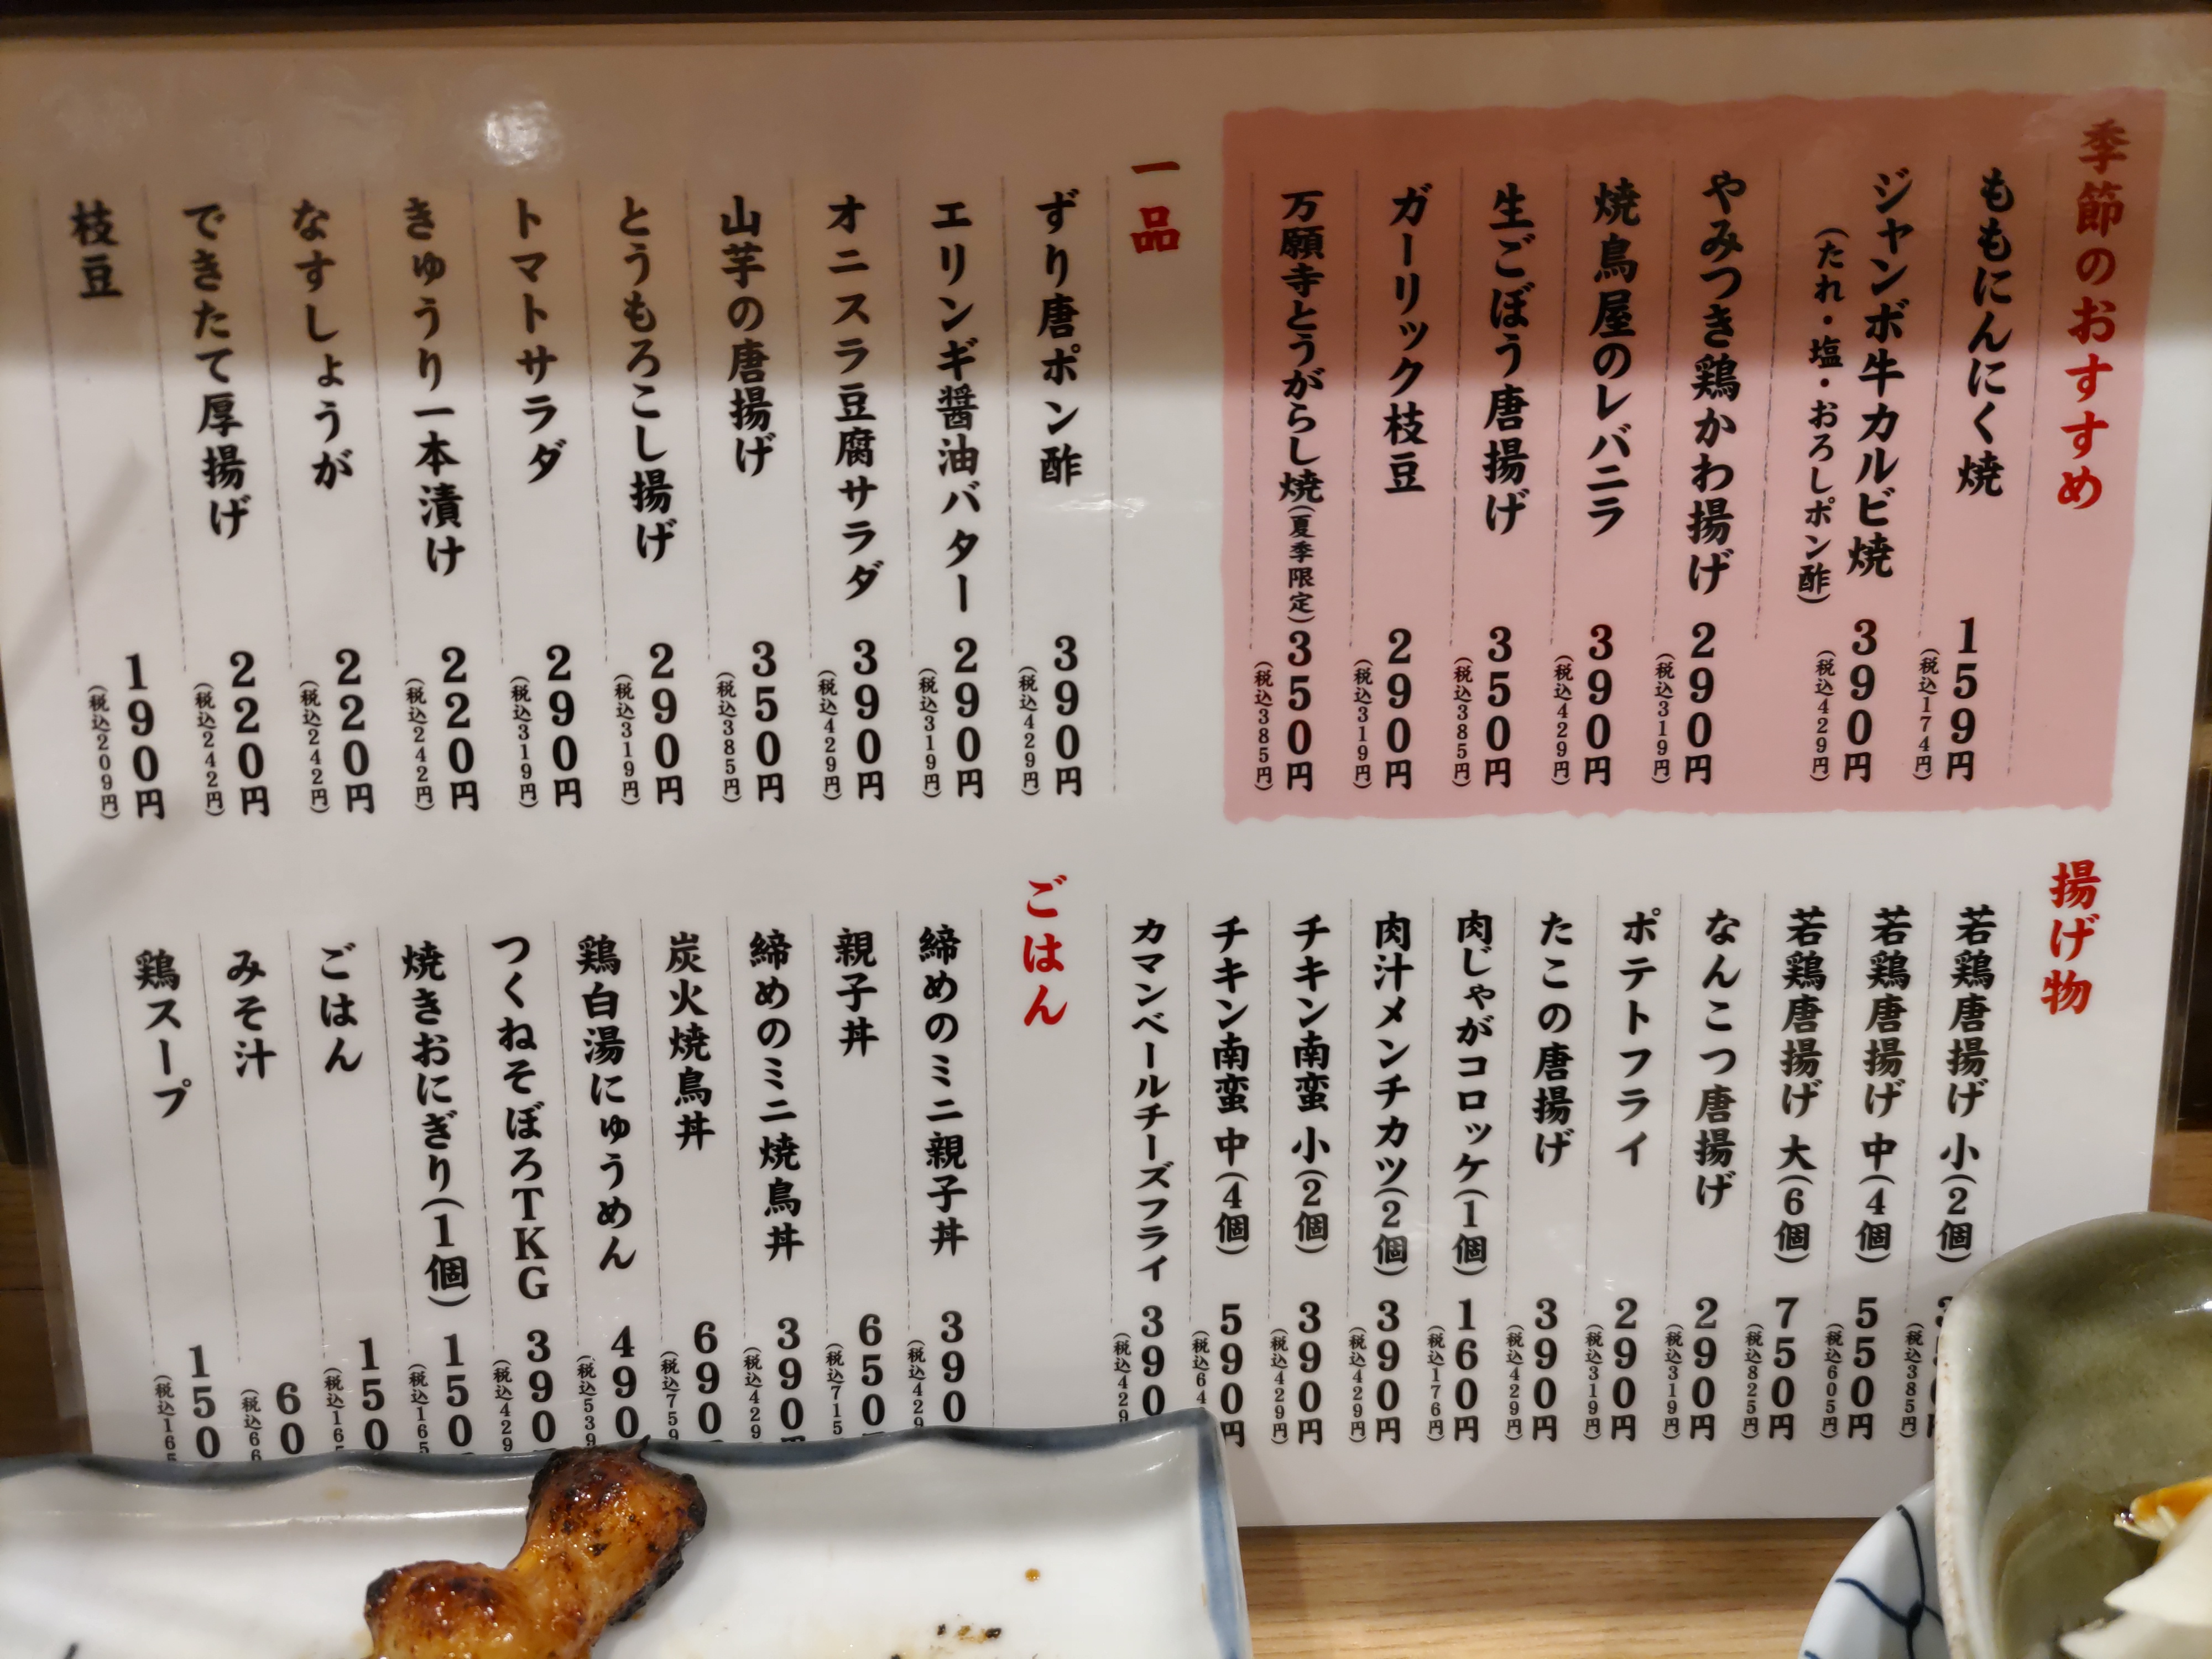 季節のおすすめ
ももにんにく焼 159円
(税込174円)
ジャンボ牛カルビ焼 390円
(たれ・塩・おろしポン酢)
(税込429円)
やみつき鶏かわ揚げ 290円
(税込319円)
焼鳥屋のレバニラ 390円
(税込429円)
生ごぼう唐揚げ 350円
(税込385円)
ガーリック枝豆 290円
(税込319円)
万願寺とうがらし焼(夏季限定) 350円
(税込385円)
一品
ずり唐ポン酢 390円
(税込429円)
エリンギ醤油バター 290円
(税込319円)
オニスラ豆腐サラダ 390円
(税込429円)
山芋の唐揚げ 350円
(税込385円)
とうもろこし揚げ 290円
(税込319円)
トマトサラダ 290円
(税込319円)
きゅうり一本漬け 220円
(税込242円)
なすしょうが 220円
(税込242円)
できたて厚揚げ 220円
(税込242円)
枝豆 190円
(税込209円)
揚げ物
若鶏唐揚げ 小(2個)
(税込385円
若鶏唐揚げ 中(4個) 550円
(税込605円)
若鶏唐揚げ 大(6個) 750円
(税込825円)
なんこつ唐揚げ 290円
(税込319円)
ポテトフライ 290円
(税込319円)
たこの唐揚げ 390円
(税込429円)
肉じゃがコロッケ(1個) 160円
(税込176円)
肉汁メンチカツ(2個) 390円
(税込429円)
チキン南蛮 小(2個) 390円
(税込429円)
チキン南蛮 中(4個) 590円
(税込64
カマンベールチーズフライ 390
(税込429
ごはん
締めのミニ親子丼 390
(税込429
親子丼 650
(税込715
締めのミニ焼鳥丼 390円
(税込429
炭火焼鳥丼 690
(税込759
鶏白湯にゅうめん 490
(税込539
つくねそぼろTKG 390
(税込429
焼きおにぎり(1個) 150
(税込165
ごはん 150
(税込165
みそ汁 60
(税込66
鶏スープ 150
(税込165